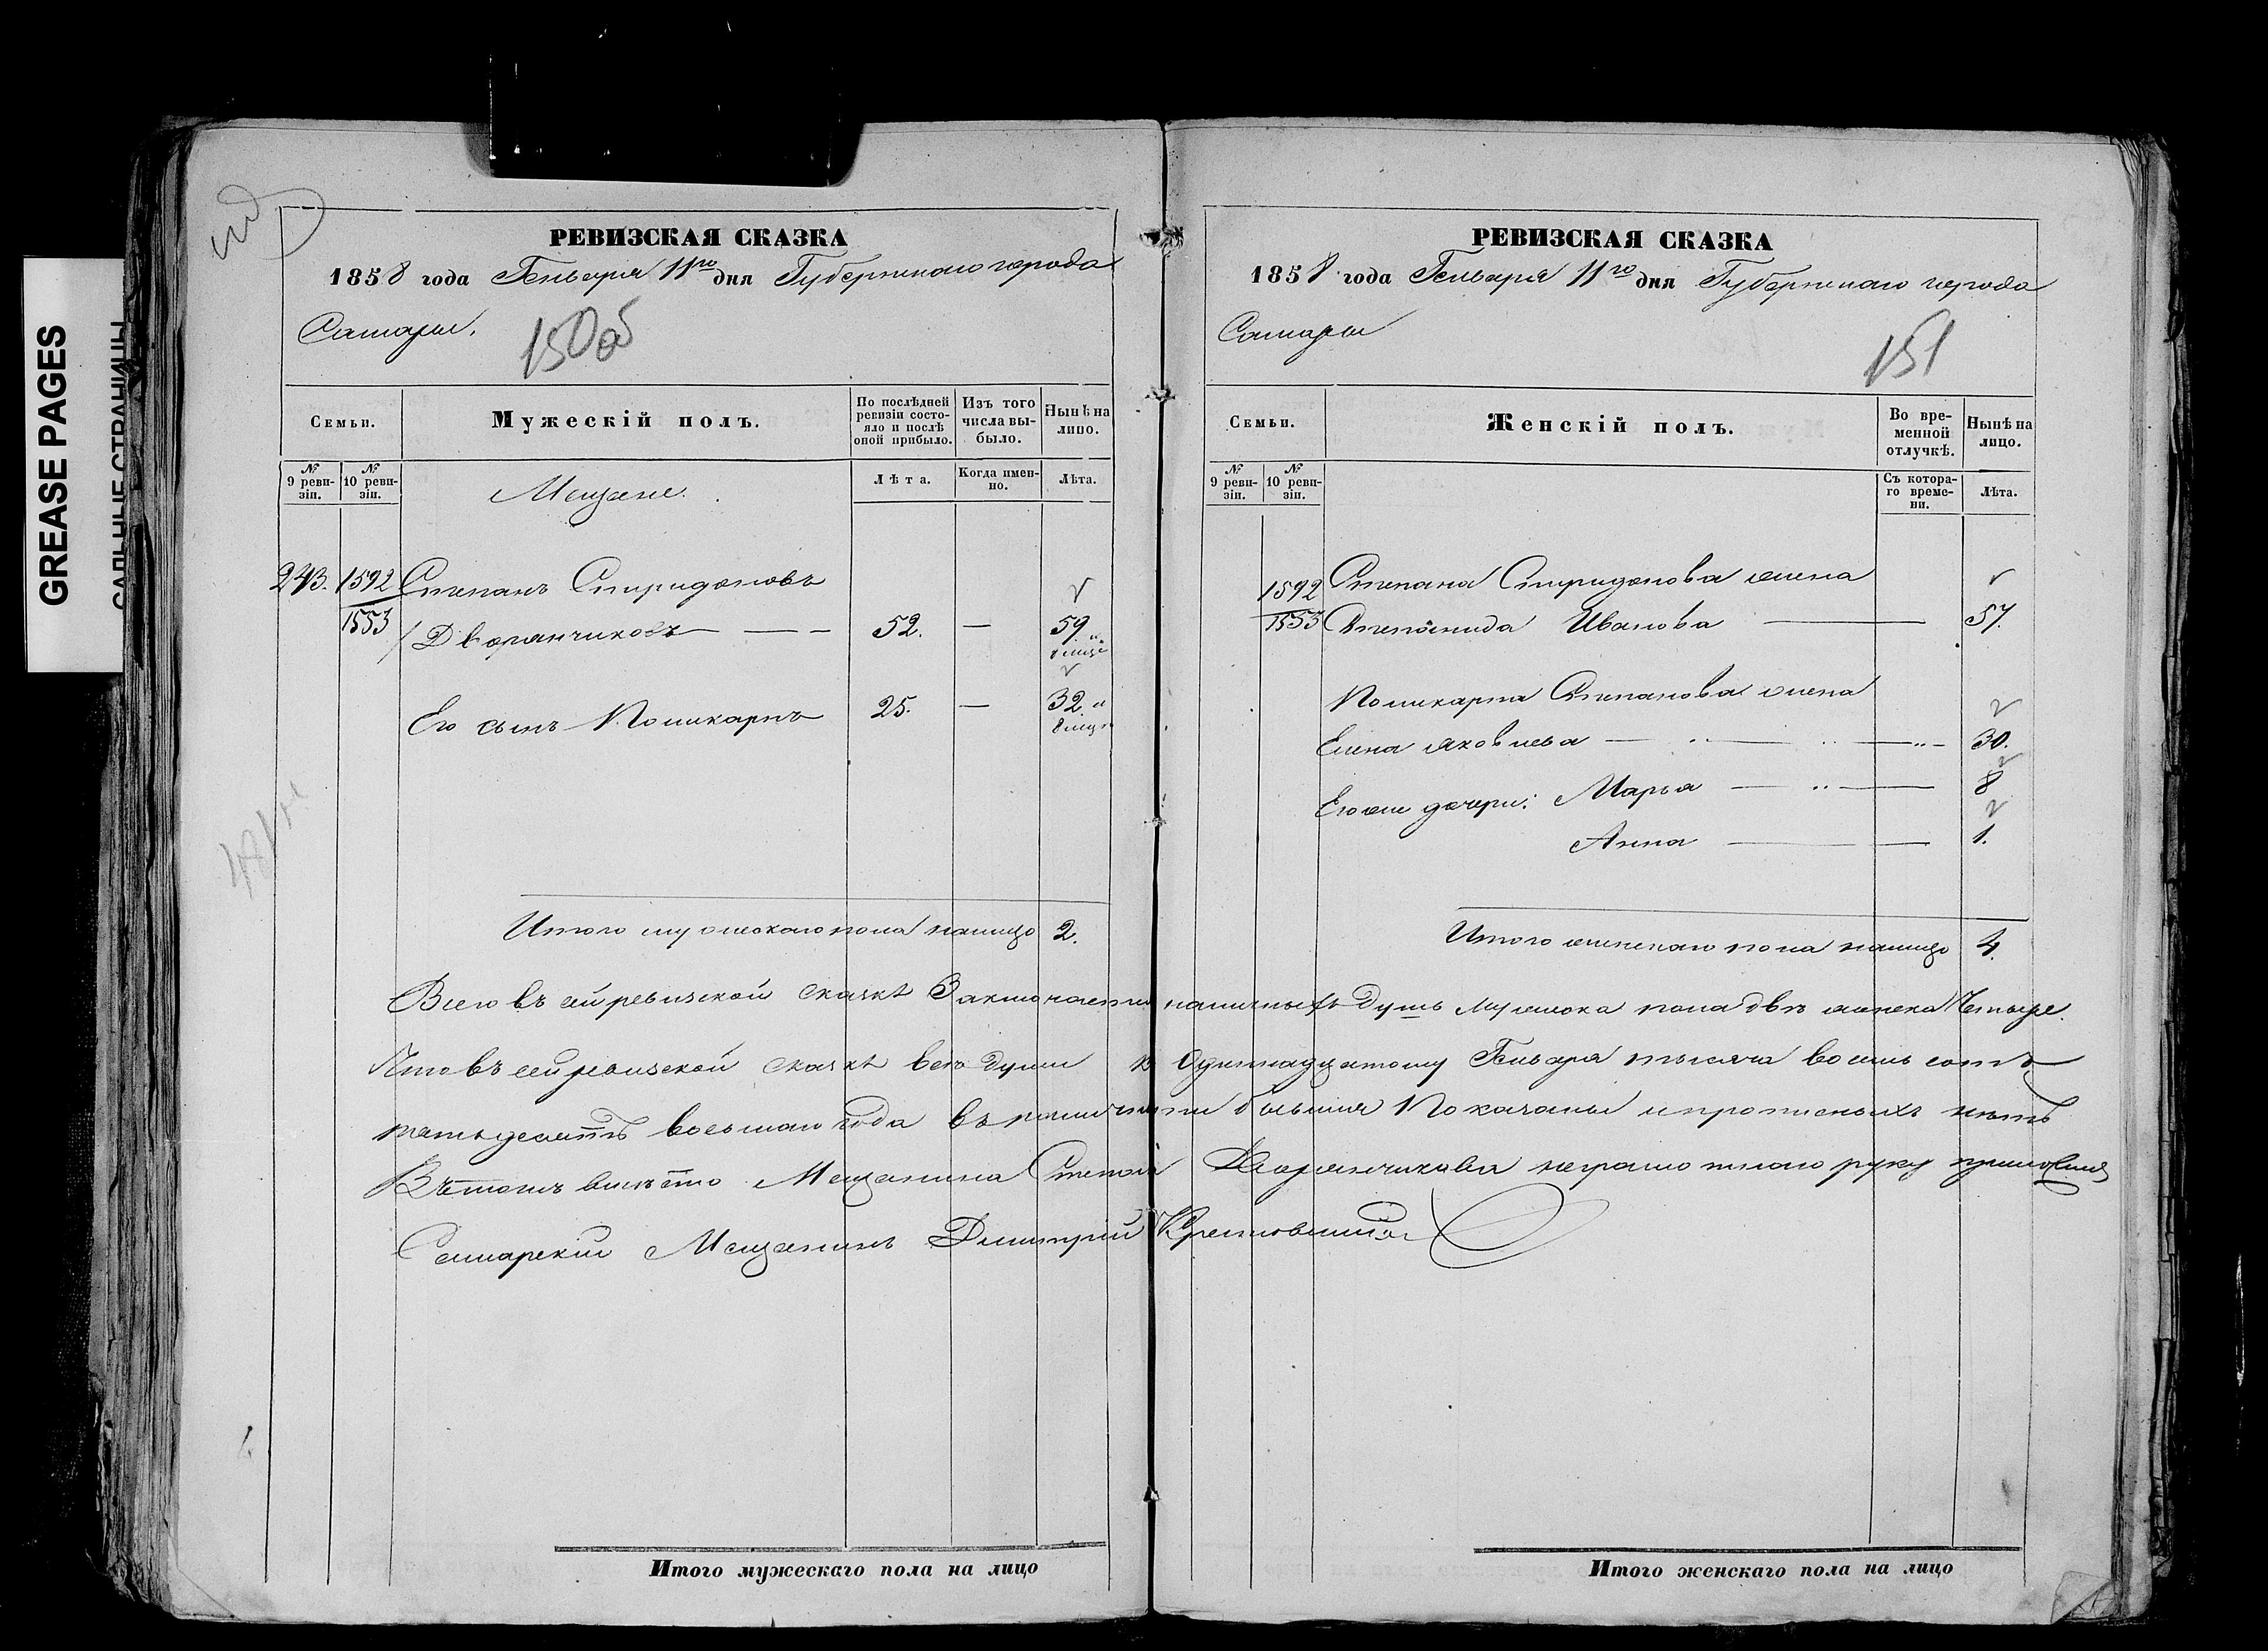 GREASE PAGES
САЛЬНЫЕ СТРАНИЦЫ
РЕВИЗСКАЯ СКАЗКА
1858 года Генваря 11го дня Губернскаго города
Самары.
150об
Семьи.
Мужескій полъ.
По послѣдней ревизіи состояло и послѣ оной прибыло.
Изъ того числа выбыло.
Нынѣ на лицо.
№ 9 ревизіи.
№ 10 ревизіи.
Мещане.
Лѣта.
Когда именно.
Лѣта.
243. 1592 Степанъ Спиридоновъ
1553 Дворянчиковъ — — — 52. — 59. и
8 мще
Его сынъ Поликарпъ 25. — 32 и
8 мще
Итого мужескаго пола налицо 2.
РЕВИЗСКАЯ СКАЗКА
1858 года Генваря 11го дня Губернскаго города
Самары
151
Семьи.
Женскій полъ.
Во временной отлучкѣ.
Нынѣ на лицо.
№ 9 ревизіи.
№ 10 ревизіи.
Съ котораго времени.
Лѣта.
1592 Степана Спиридонова жена
1553 Степанида Иванова — 57.
Поликарпа Степанова жена
Елена Яковлева — 30.
Его же дочери: Марья — 8
Анна — 1.
Итого женскаго пола налицо 4.
Всего въ сей ревизской сказкѣ Заключается наличныхъ душъ мужска пола двѣ женска Четыре.
Что въ сей ревизской сказкѣ всѣ души к Одиннадцатому Генваря тысяча восемь сотъ
пятьдесятъ восьмаго года въ наличности бывшия Показаны и прописныхъ нѣтъ
Въ томъ вместо Мещанина Степана Дворянчикова неграмотнаго руку приложил
Самарский Мещанинъ Дмитрий
Итого мужескаго пола на лицо
Итого женскаго пола на лицо